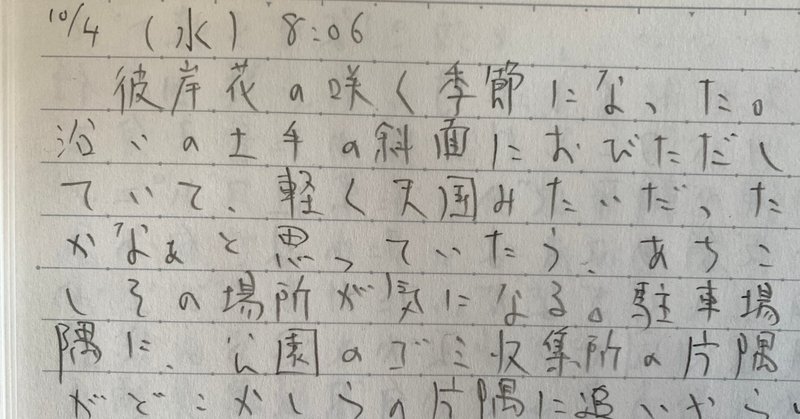 10/4 (水) 8:06
彼岸花の咲く季節になった。
沿いの土手の斜面におびただし
ていて、軽く天国みたいだった
かなぁと思っていたら、あちこ
しその場所が気になる。駐車場
隅に、公園のゴミ収集所の片隅
がどこかしらの片隅に追いやら